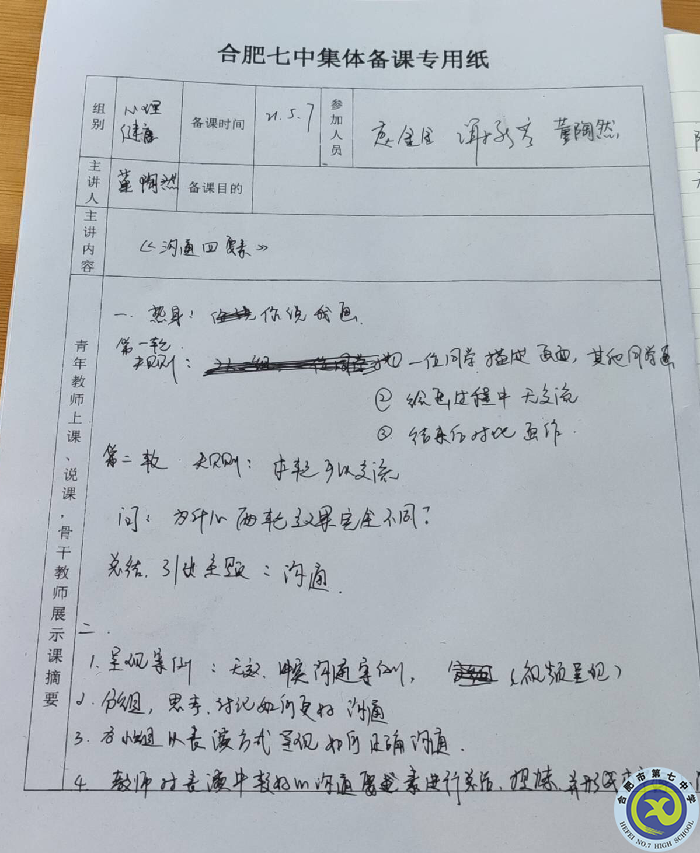 合肥七中集体备课专用纸
组别 心理健康 备课时间 21.5.7 参加人员 董陶然
主讲人 董陶然 备课目的
主讲内容 《沟通四要素》
青年教师上课、说课,骨干教师展示课摘要
一. 热身: 你说我画.
第一轮
规则: 一位同学描述画面, 其他同学画
② 绘画过程中无交流
③ 结束后对比画作.
第二轮 规则: 本轮可以交流
问: 为什么两轮效果完全不同?
总结, 引出主题: 沟通.
二.
1. 呈现案例: 无效. 沟通案例, (视频呈现)
2. 分组, 思考、讨论如何更好沟通
3. 各小组以表演方式呈现如何正确沟通.
4. 教师对表演中较好的沟通要素进行总结、提炼, 并形成
合肥市第七中学
HEFEI NO.7 HIGH SCHOOL